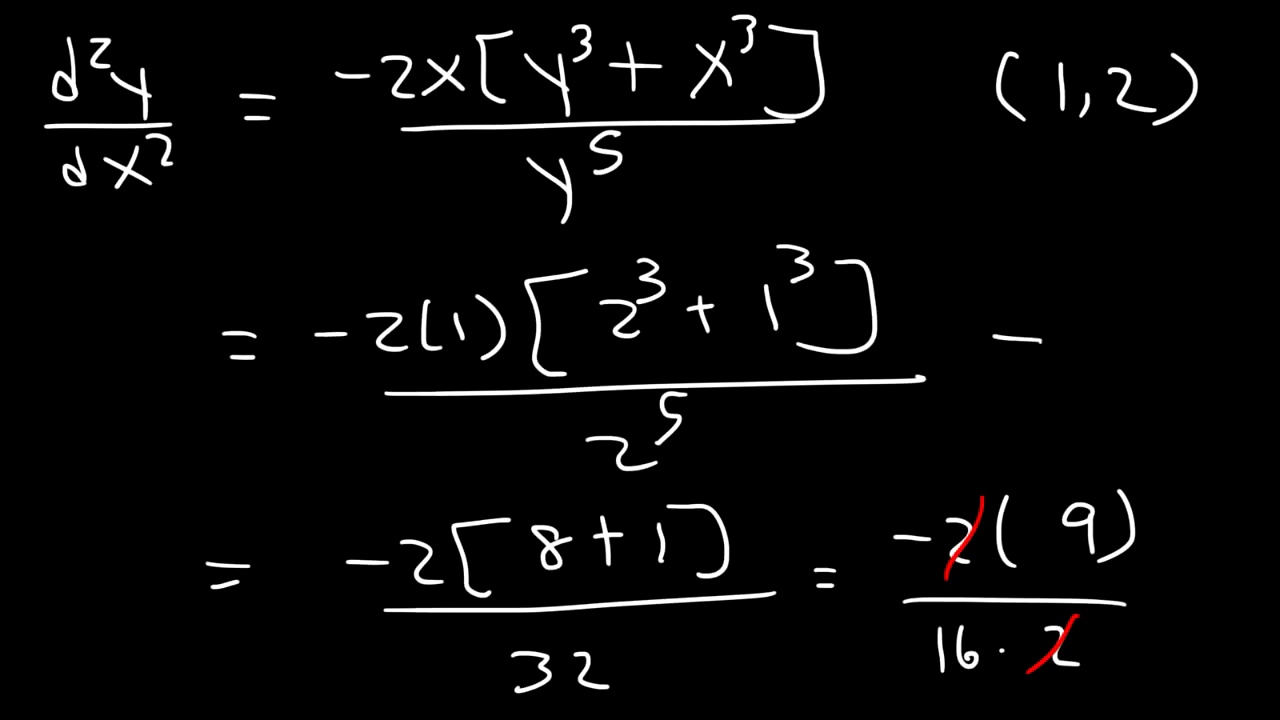 d²y/dx² = -2x[y³ + x³]/y⁵ (1,2)
= -2(1)[2³ + 1³]/2⁵ -
= -2[8+1]/32 = -2(9)/16·2